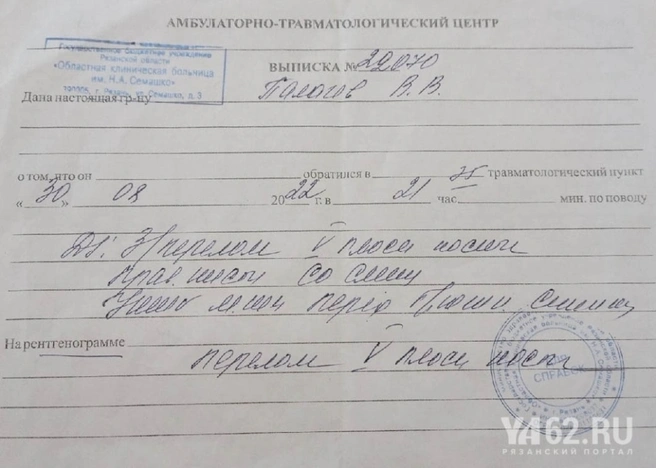 АМБУЛАТОРНО-ТРАВМАТОЛОГИЧЕСКИЙ ЦЕНТР
Государственное бюджетное учреждение
Рязанской области
«Областная клиническая больница
им. Н.А. Семашко»
390005, г. Рязань, ул. Семашко, д. 3
ВЫПИСКА № 29070
Дана настоящая гр-цу В.В.
о том, что он обратился в травматологический пункт
« 30 » 08 20 22 г. в 21 час. 35 мин. по поводу
Ds: З/перелом V плюсн кости
прав. стопы со смещ
Ушиб перед брюшн стенки
На рентгенограмме
перелом V плюсн кости
СПРАВОК
YA62.RU
РЯЗАНСКИЙ ПОРТАЛ